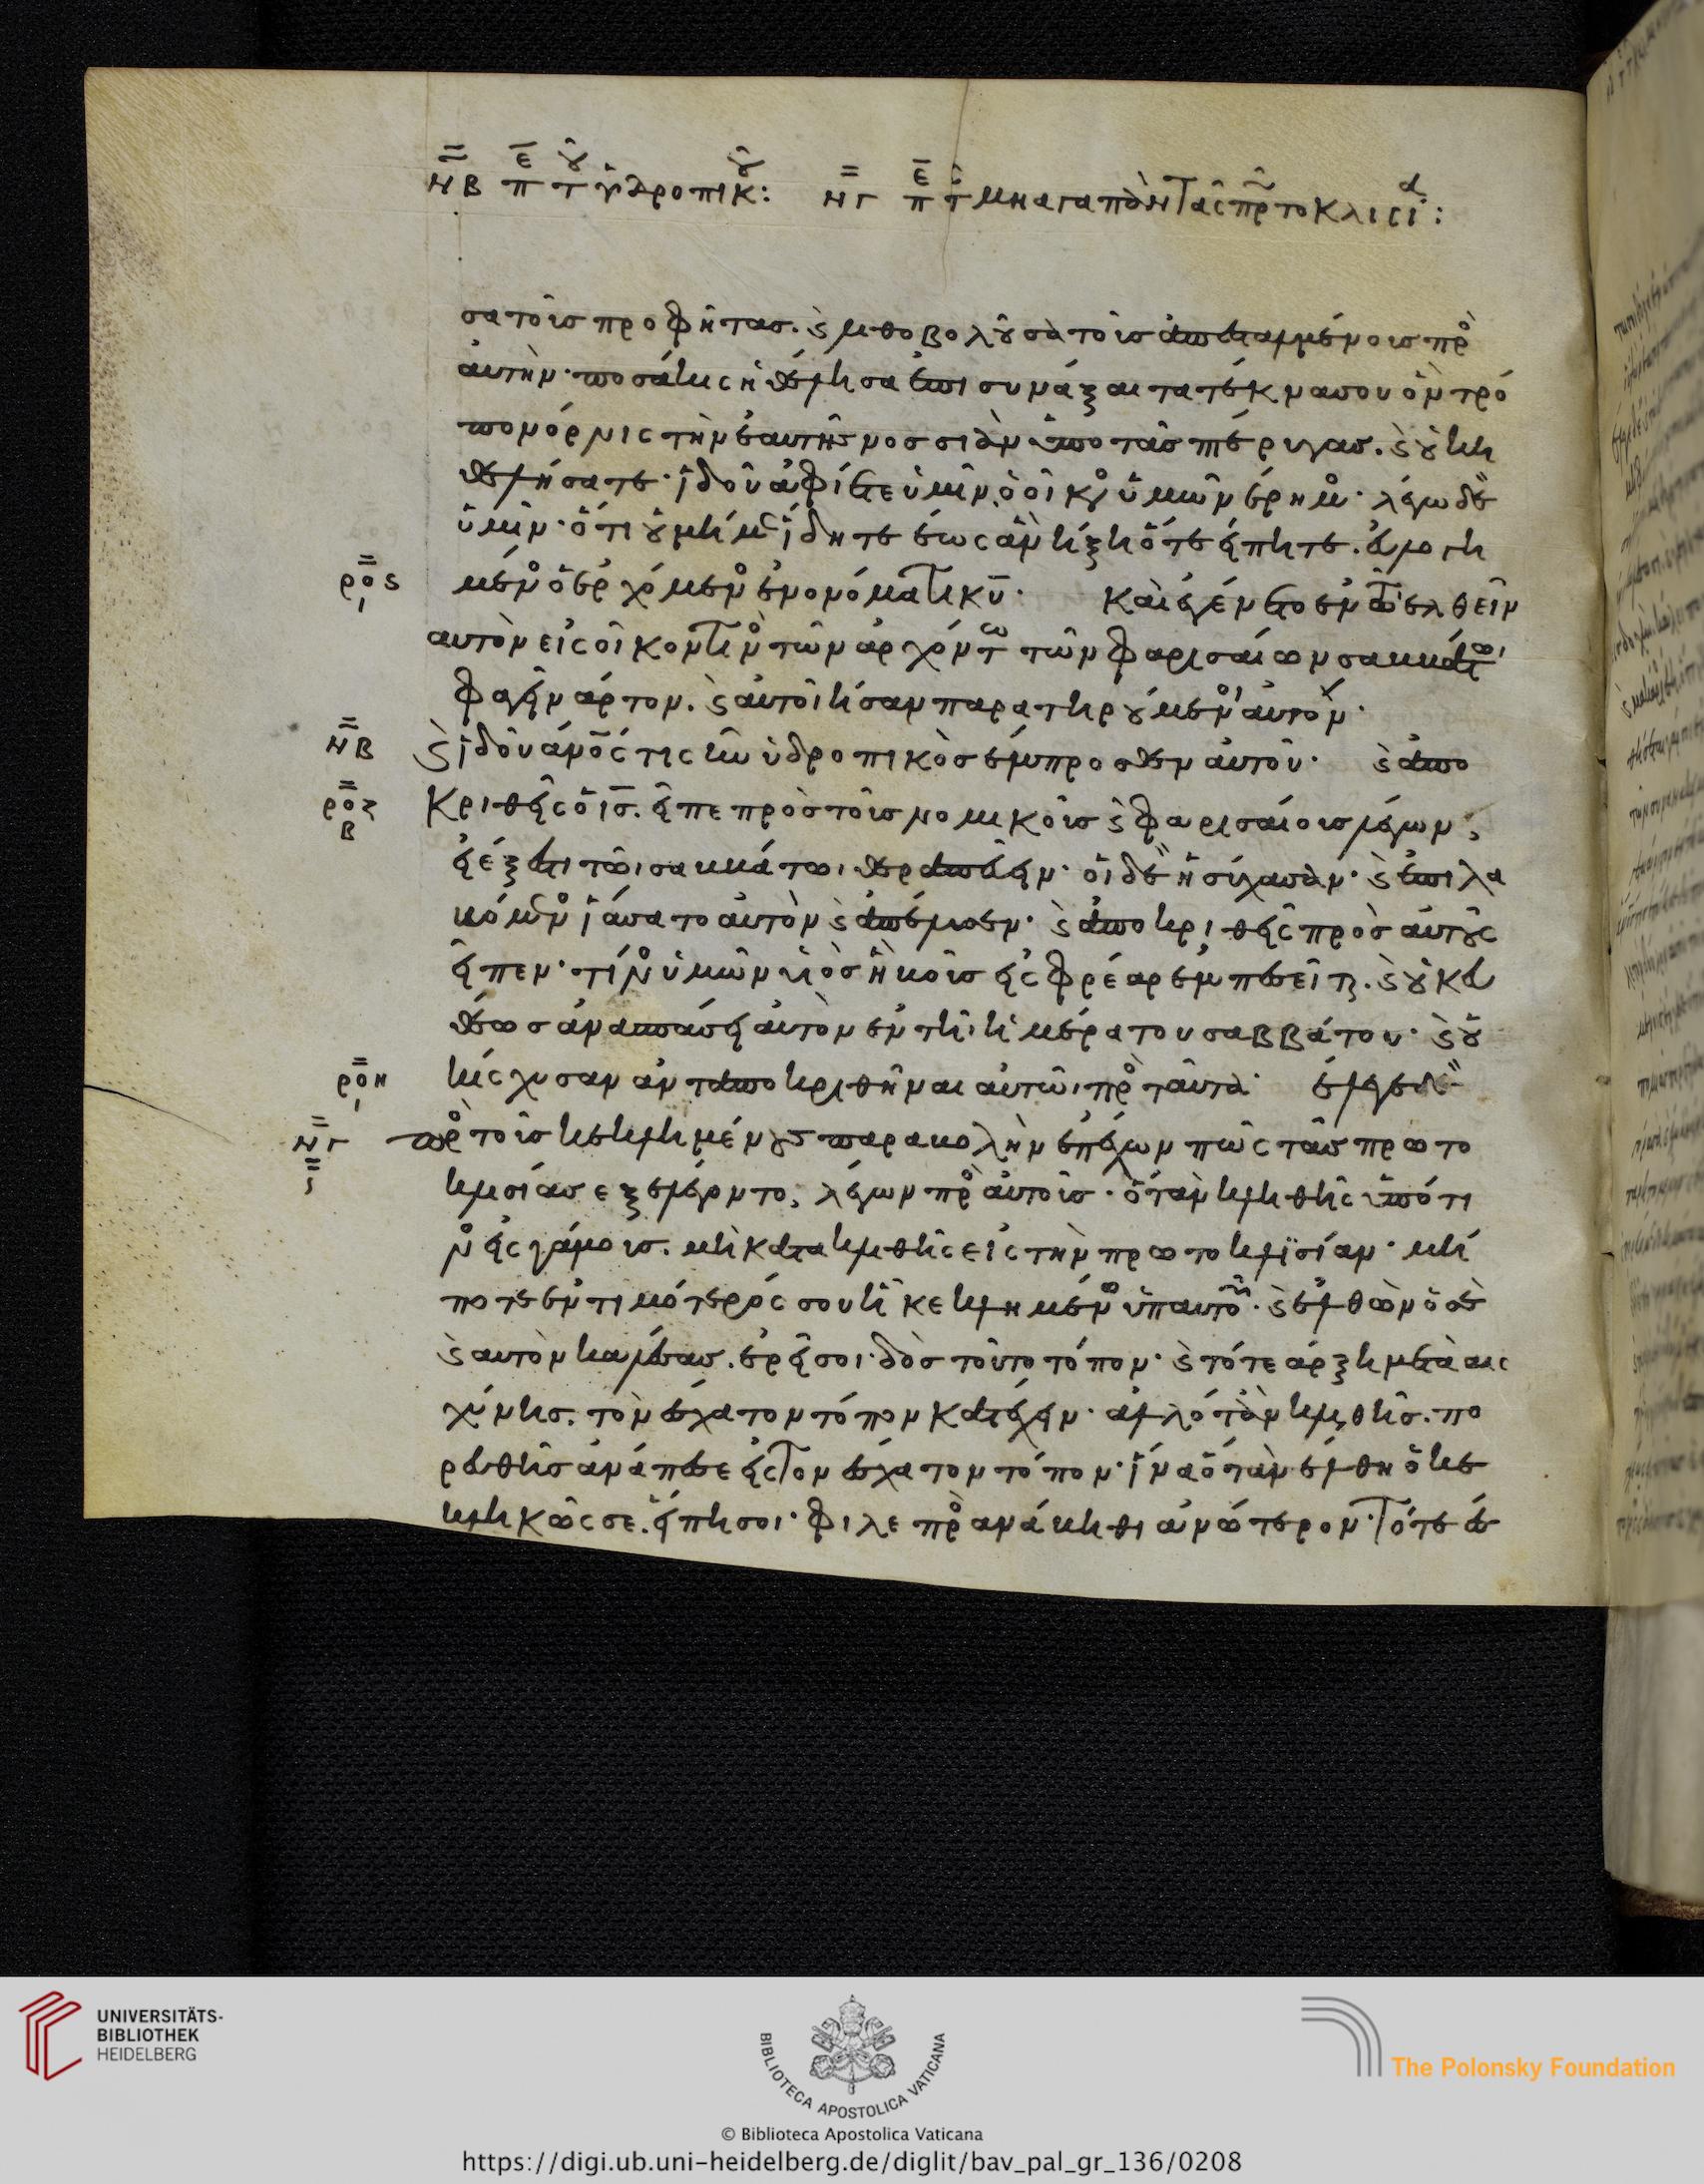 ΝΒ ΠΕ Τοῦ ὑδροπικοῦ: ΝΓ ΠΕ Τ μὴ ἀγαπὸντας πρτοκλισία:
σα τοὺσ προφήτασ. ϛ λιθοβολοῦσα τοὺσ ἀπεσταλμένουσ πρὸς
ἀυτὴν· ποσάκις ἠθέλησα ἐπισυνάξαι τα τέκνα σου ὃν τρό
πον όρνις τὴν ἑαυτῆς νοσσιὰν ὑπο τὰσ πτέρυγασ. ϛ οὐκ ἠ
θελήσατε· ἰδοὺ ἀφίεται ὑμῖν ὁ οἶκος ὑμῶν ἔρημος· λέγω δὲ
ὑμῖν· ὅτι οὐ μή με ἴδητε ἕως ἂν ἥξη ὅτε εἴπητε. ἐυλογη
ροϛ μένος ὁ ἐρχόμενος ἐν ονόματι κυ· Και ἐγένετο ἐν τῶ ἐλθεῖν
αυτὸν εἰς οἶκον τινος τῶν ἀρχόντων τῶν φαρισαίων σαββάτωι
φαγεῖν αρτον. ϛ αὐτοὶ ἦσαν παρατηρούμενοι αυτόν·
ΝΒ ϛ ἰδοὺ ἀνος τις ἦν ὑδροπικὸσ ἔμπροσθεν αὐτοῦ· ϛ ἀπο
ροζ Β κριθεὶς ὁ ισ. εἶπε πρὸσ τοὺσ νομικοὺσ ϛ φαρισαίουσ λέγων,
εἰ ἔξεστι τῶι σαββάτωι θεραπεύειν· οἱ δὲ ἡσύχασαν· ϛ ἐπιλα
βόμενος ἰάσατο αὐτὸν ϛ ἀπέλυσεν· ϛ ἀποκριθεὶς πρὸσ αὐτοὺς
εἶπεν· τίνος ὑμῶν υἱὸσ ἢ βοῦσ εἰς φρέαρ ἐμπεσεῖται. ϛ οὐκ ευ
θέωσ ἀνασπάσει αὐτὸν ἐν τῆι ἡμέρα του σαββάτου· ϛ οὐκ
ροη ἴσχυσαν ἀνταποκριθῆναι αὐτῶι πρὸς ταῦτα· ἔλεγε δὲ
ΝΓ πρὸς τοὺσ κεκλημένους παραβολὴν ἐπέχων πῶς τὰσ πρωτο
κλισίασ εξελέγοντο, λέγων πρὸς αὐτοὺσ· ὅταν κληθῆς ὑπό τι
νος εἰς γάμουσ. μὴ κατακλιθῆς εἰς τὴν πρωτοκλϊσίαν· μή
ποτε ἐντιμότερός σου ῆ κεκλημένος ὑπ αυτοῦ· ϛ ἐλθὼν ὁ σὲ
ϛ αυτὸν καλέσασ. ἐρεῖ σοι· δὸσ τούτο τόπον· ϛ τότε ἄρξη μετὰ αις
χύνησ. τὸν ἔσχατον τόπον κατέχειν· ἀλλ ὁτὰν κληθῆσ. πο
ρευθεὶσ ἀνάπεσε εἰς τὸν ἔσχατον τόπον· ἵνα ὅταν ἔλθη ὁ κε
κληκώς σε. εἴπη σοι· φιλε πρὸς ανάβηθι ἀνώτερον· τότε ἔσ
UNIVERSITÄTS-
BIBLIOTHEK
HEIDELBERG
BIBLIOTECA APOSTOLICA VATICANA
The Polonsky Foundation
© Biblioteca Apostolica Vaticana
https://digi.ub.uni-heidelberg.de/diglit/bav_pal_gr_136/0208